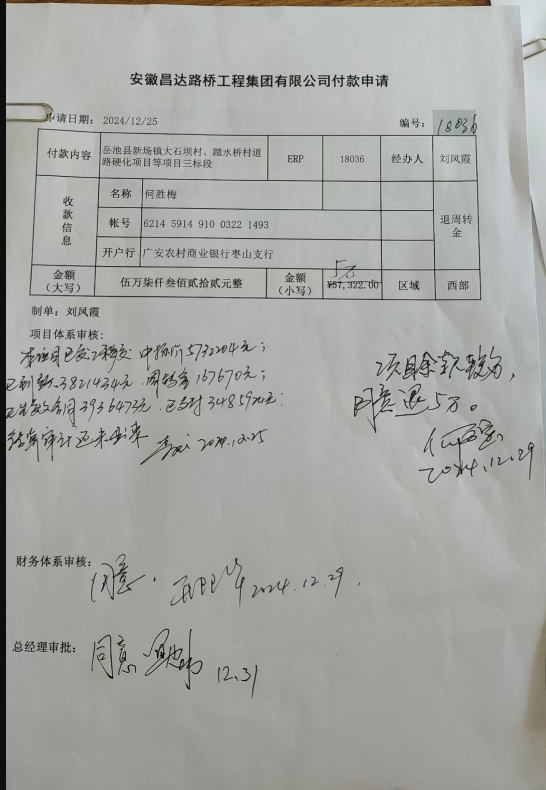 安徽昌达路桥工程集团有限公司付款申请
申请日期: 2024/12/25 编号: 18036
付款内容 岳池县新场镇大石坝村、踏水桥村道路硬化项目等项目三标段 ERP 18036 经办人 刘凤霞
收款信息 名称 何胜梅 退周转金
帐号 6214 5914 910 0322 1493
开户行 广安农村商业银行枣山支行
5万
金额(大写) 伍万柒仟叁佰贰拾贰元整 金额(小写) ¥57,322.00 区域 西部
制单: 刘凤霞
项目体系审核:
本项目已完工程交 中标价5732204元;
已到款3821434元.周转金167670元;
已生效合同3936473元.已支付
结算审计还未出来 2024.12.25
项目余款较为,
同意退5万。
2024.12.29
财务体系审核:
同意. 2024.12.29.
总经理审批:
同意 12.31